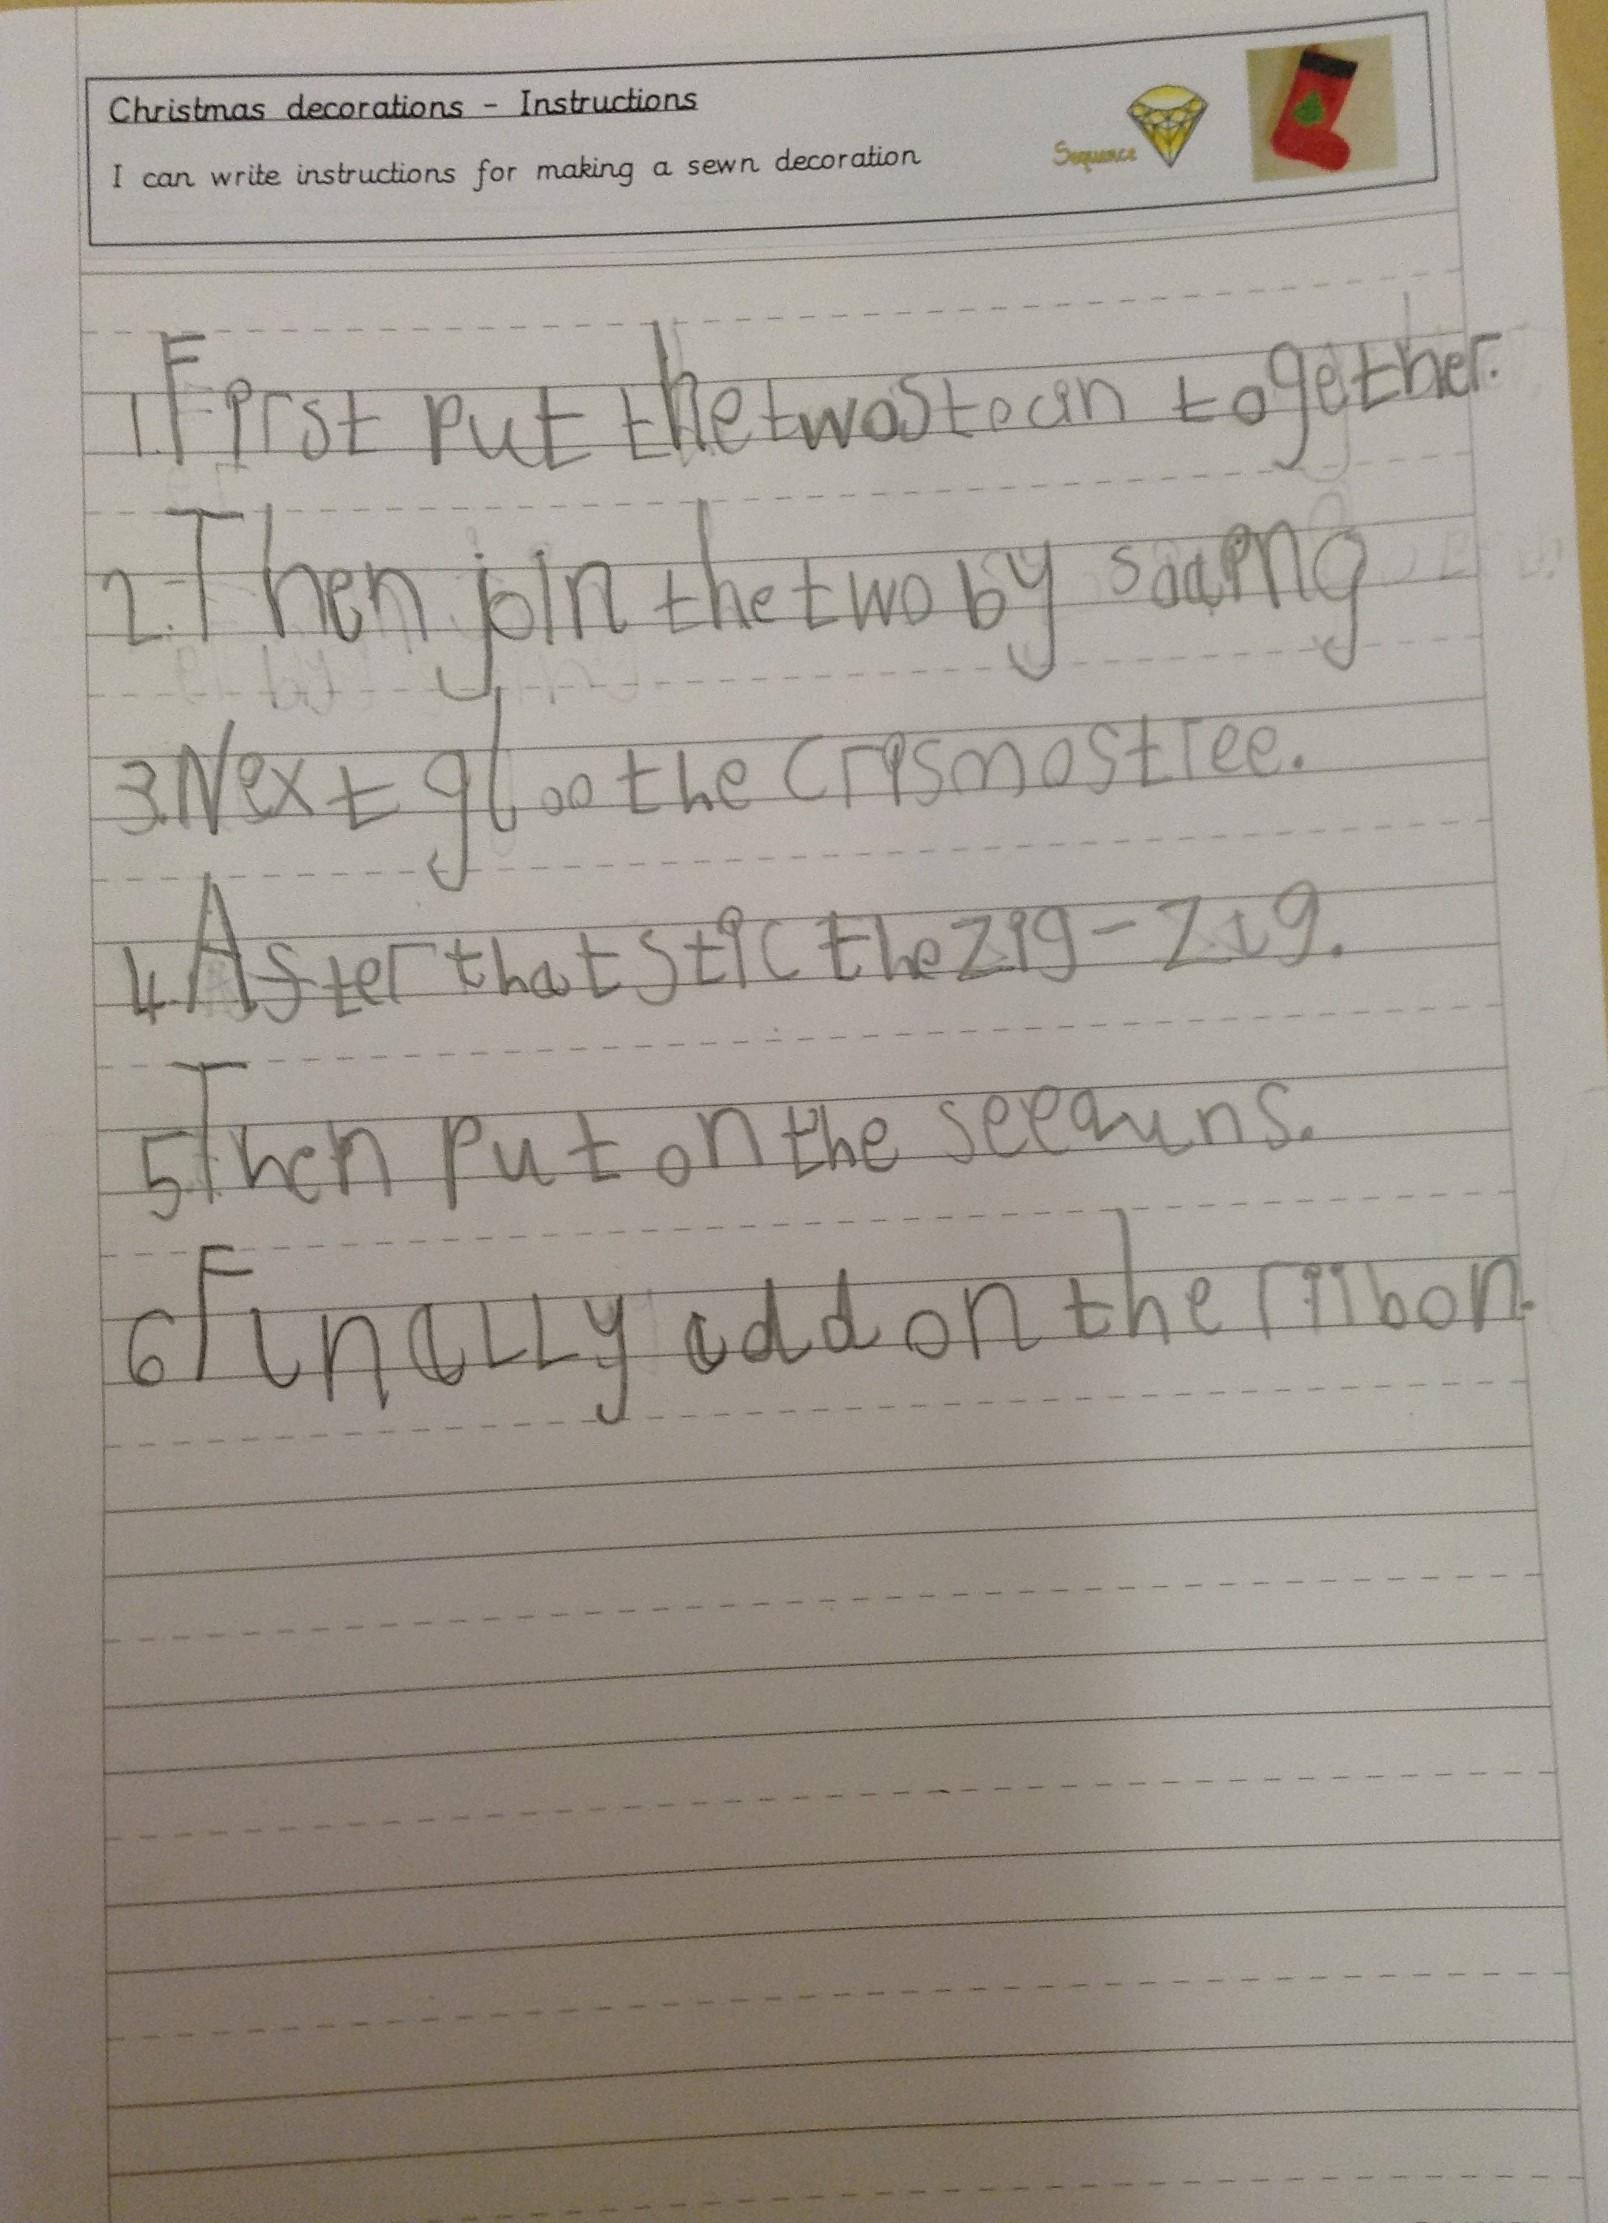 Christmas decorations - Instructions
I can write instructions for making a sewn decoration
Sequence
1. First put the two stocin together.
2. Then join the two by soaing
3. Next gloo the crismos tree.
4. After that stic the zig-zig.
5. Then put on the seequns.
6 Finally add on the riibon.